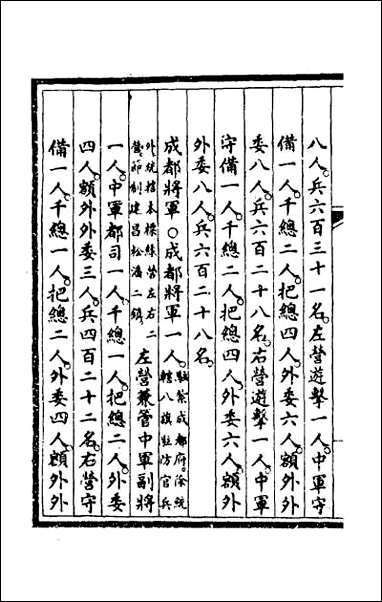 八人。兵六百三十一名。左營遊擊一人。中軍守
備一人。千總二人。把總四人。外委六人。額外外
委八人。兵六百二十八名。右營遊擊一人。中軍
守備一人。千總二人。把總四人。外委六人。額外
外委八人。兵六百二十八名。
成都將軍○成都將軍一人。駐紮成都府。除統
轄八旗駐防官兵
外統轄本標綠營左右二
營節制建昌松潘二鎮
左營兼管中軍副將
一人。中軍都司一人。千總一人。把總二人。外委
四人。額外外委三人。兵四百二十二名。右營守
備一人。千總一人。把總二人。外委四人。額外外